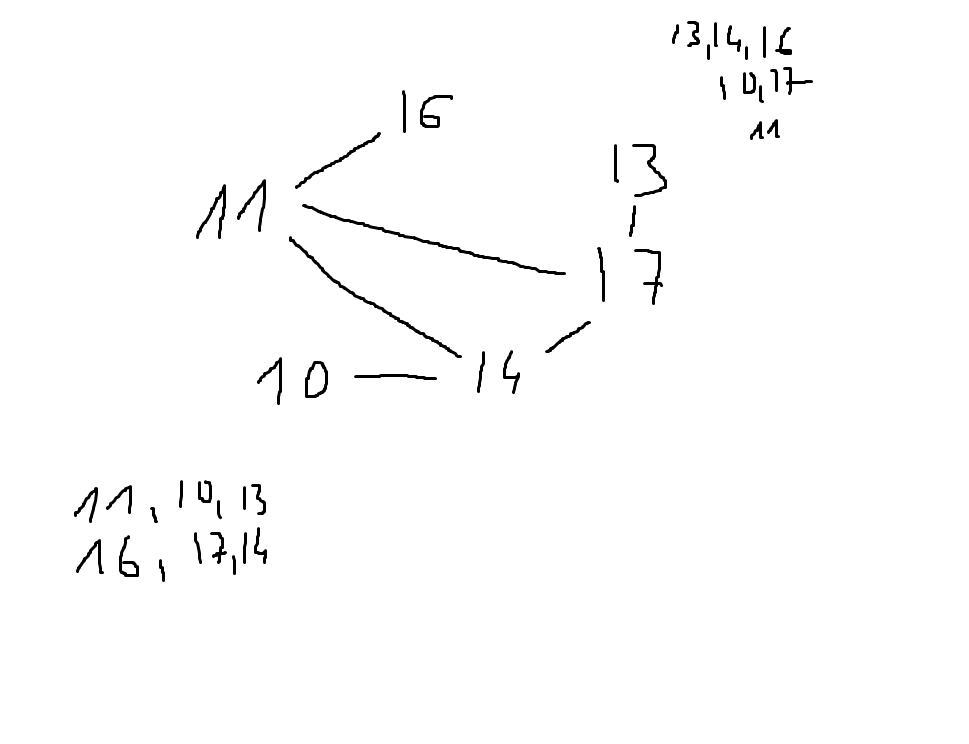 13,14,16
10,17
11
16
13
11
17
10
14
11, 10, 13
16, 17,14